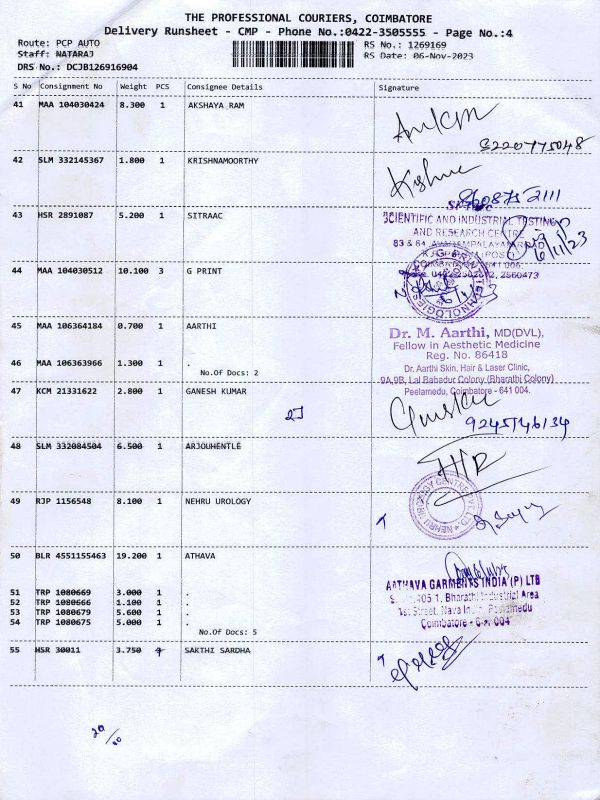 THE PROFESSIONAL COURIERS, COIMBATORE
Delivery Runsheet - CMP - Phone No.:0422-3505555 - Page No.:4
Route: PCP AUTO
Staff: NATARAJ
DRS No.: DCJB126916904
RS No.: 1269169
RS Date: 06-Nov-2023
S No Consignment No Weight PCS Consignee Details Signature
41 MAA 104030424 8.300 1 AKSHAYA RAM
9220775048
42 SLM 332145367 1.800 1 KRISHNAMOORTHY
Krishna
43 HSR 2891087 5.200 1 SITRAAC
SCIENTIFIC AND INDUSTRIAL TESTING
AND RESEARCH CENTRE
6/11/23
44 MAA 104030512 10.100 3 G PRINT
45 MAA 106364184 0.700 1 AARTHI
Dr. M. Aarthi, MD(DVL),
Fellow in Aesthetic Medicine
Reg. No. 86418
46 MAA 106363966 1.300 1 .
No.Of Docs: 2
Dr. Aarthi Skin, Hair & Laser Clinic,
9A,9B, Lal Bahadur Colony (Bharathi Colony)
Peelamedu, Coimbatore - 641 004.
47 KCM 21331622 2.800 1 GANESH KUMAR
9245746134
48 SLM 332084504 6.500 1 ARJOUHENTLE
49 RJP 1156548 8.100 1 NEHRU UROLOGY
50 BLR 4551155463 19.200 1 ATHAVA
AATHAVA GARMENTS INDIA (P) LTD
405 1, Bharathi Industrial Area
1st Street, Nava India, Peelamedu
Coimbatore - 004
51 TRP 1080669 3.000 1 .
52 TRP 1080666 1.100 1 .
53 TRP 1080679 5.600 1 .
54 TRP 1080675 5.000 1 .
No.Of Docs: 5
55 HSR 30011 3.750 SAKTHI SARDHA